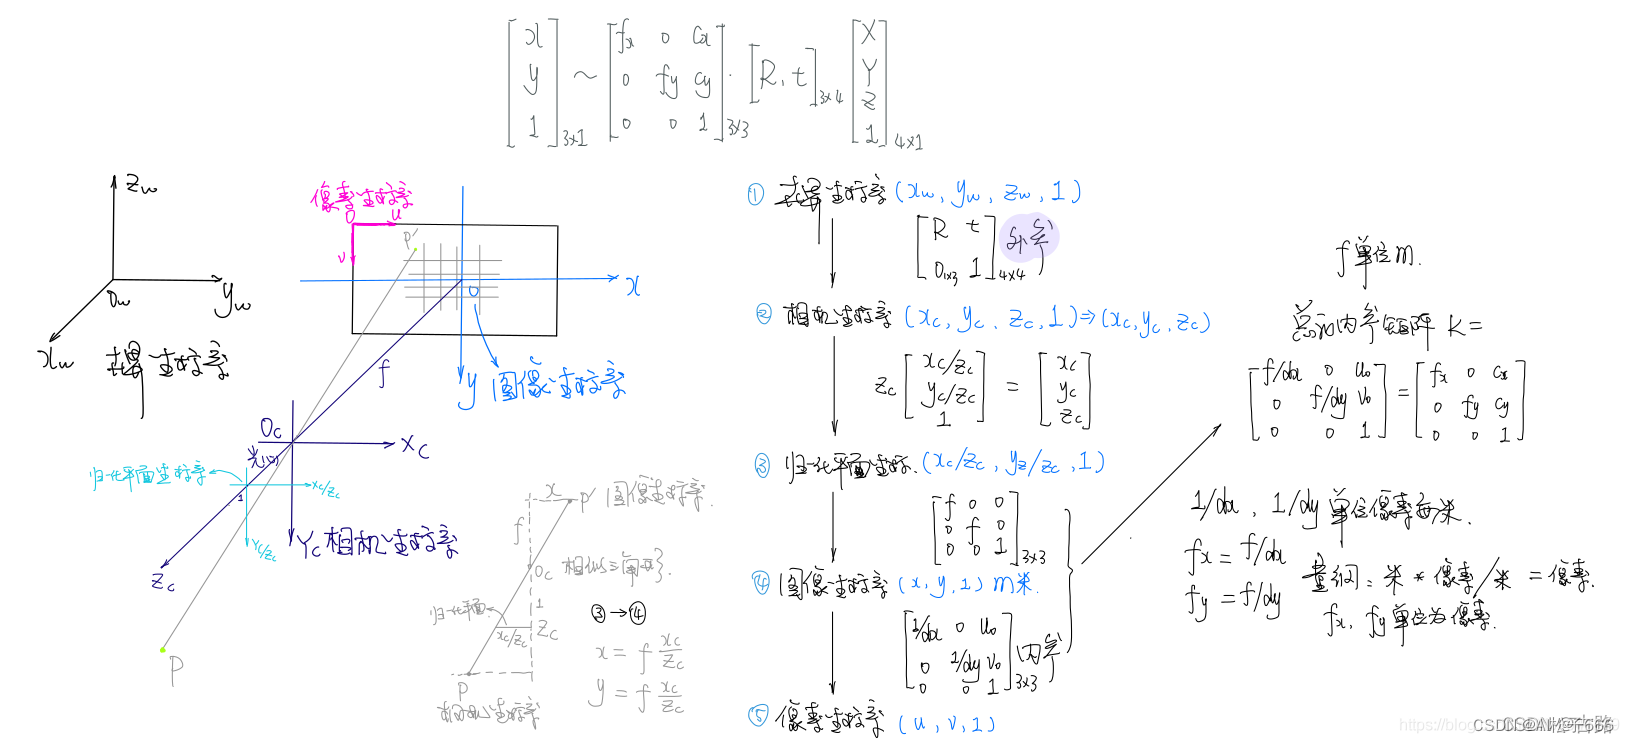 [x y 1]3×1 ~ [fx 0 cx 0 fy cy 0 0 1]3×3 · [R, t]3×4 [X Y Z 1]4×1
Zw
Ow
yw
xw
世界坐标系
像素坐标系
O
u
v
P'
o
x
y
图像坐标系
f
Oc
光心
Xc
归一化平面坐标系
1
xc/zc
yc/zc
Yc 相机坐标系
Zc
P
x
P' 图像坐标系.
f
Oc 相似三角形.
归一化平面.
1
xc/zc
Zc
P
相机坐标系
③→④
x = f xc/zc
y = f xc/zc
① 世界坐标系 (xw, yw, zw, 1)
[R t 01×3 1]4×4 外参
② 相机坐标系 (xc, yc, zc, 1)⇒(xc, yc, zc)
zc [xc/zc yc/zc 1] = [xc yc zc]
③ 归一化平面坐标. (xc/zc, yz/zc, 1)
[f 0 0 0 f 0 0 0 1]3×3
④ 图像坐标系 (x, y, 1) m米.
[1/dx 0 u0 0 1/dy v0 0 0 1]3×3 内参
⑤ 像素坐标系 (u, v, 1)
f 单位m.
总的内参矩阵 K=
[f/dx 0 u0 0 f/dy v0 0 0 1] = [fx 0 cx 0 fy cy 0 0 1]
1/dx, 1/dy 单位像素每米.
fx = f/dx
fy = f/dy
量纲: 米 * 像素/米 = 像素.
fx, fy 单位为像素.